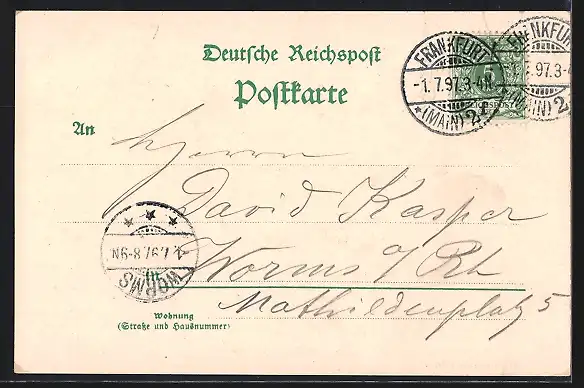 Deutsche Reichspost
Postkarte
FRANKFURT
-1.7.97.3-4N.
* (MAIN) 2
FRANKFURT
.97.3-4
(MAIN) 2
5
REICHSPOST
An
Herrn
David Kasper
Worms a/Rh
Mathildenplatz 5
WORMS
1.7.97.8-9N
Wohnung
(Straße und Hausnummer)